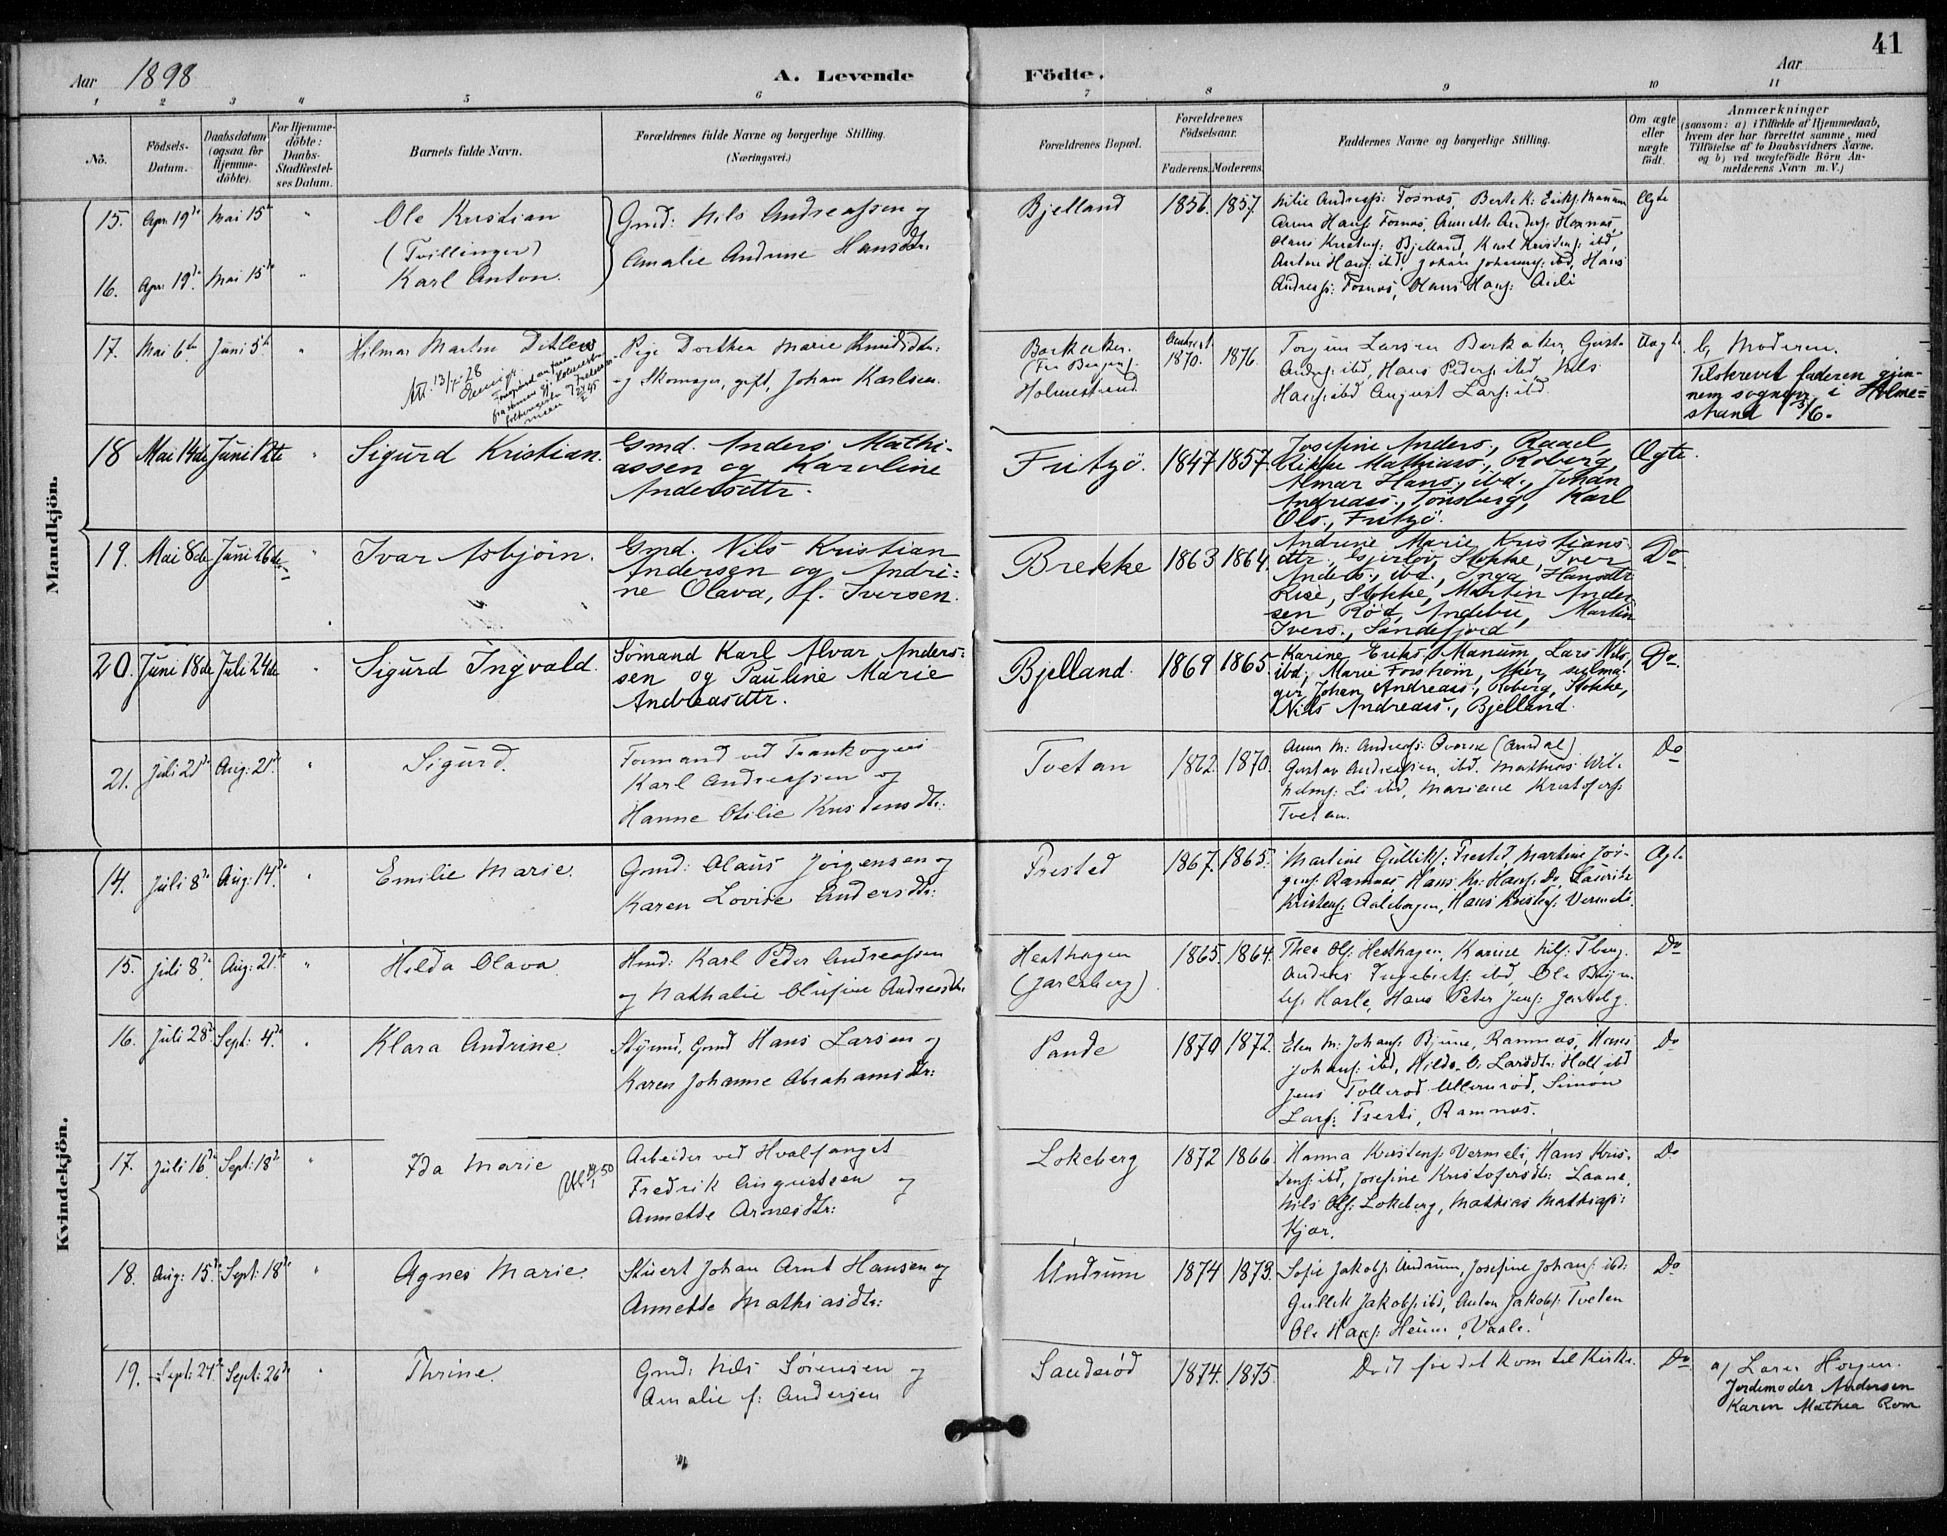 Aar 1898
A. Levende Födte.
Aar
41
1 2 3 4 5 6 7 8 9 10 11
No.
Födsels-Datum.
Daabsdatum (ogsaa for Hjemme-döbte).
For Hjemme-döbte: Daabs-Stadfæstel-ses Datum.
Barnets fulde Navn.
Forældrenes fulde Navne og borgerlige Stilling.
(Næringsvei.)
Forældrenes Bopæl.
Forældrenes Födselsaar.
Faderens. Moderens.
Faddernes Navne og borgerlige Stilling.
Om ægte eller uægte födt.
Anmærkninger
(saasom: a) i Tilfælde af Hjemmedaab,
hvem der har forrettet samme, med
Tilföielse af to Daabsvidners Navne,
og b) ved uægtefödte Börn An-
melderens Navn m. V.)
Mandkjön.
15. Apr. 19de Mai 15de " Ole Kristian
(Tvillinger)
16. Apr. 19de Mai 15de " Karl Anton.
Gmd: Nils Andreassen og
Amalie Andrine Hansdtr.
Bjelland 1856. 1857.
Anna Hans: Fosnæs, Annette Anders: Hexnæs,
Olaus Kristens: Bjelland, Karl Kristens: ibd,
Anton Hans: ibd, Johan Johannes: ibd, Hans
Andreass: Fosnæs, Olaus Hans: Auli
Ægte
17. Mai 6te Juni 5te " Hilmar Martin Ditlev
Att. 13/7-28
Pige Dorthea Marie Knudsdtr:
og Skomager, gift, Johan Karlsen.
Barkaker.
Holmestrand
1870. 1876.
Torjus Larsen Barkaker, Gusta
Anders: ibd, Hans Peders: ibd, Nils
Hans: ibd August Lars: ibd.
Uægte
b, Moderen.
Tilskrevet faderen gjen-
nem sognepr. i Holme=
strand /6.
18 Mai 14de Juni 12te " Sigurd Kristian.
Gmd. Anders Mathi-
assen og Karoline
Andersdtr.
Fritzö. 1847 1857.
Josefine Anders., Raael,
Rikke Mathiass., Roberg,
Almar Hans., ibd., Johan
Andreass., Tönsberg, Karl
Ols., Fritzö.
Ægte.
19. Mai 8de Juni 26de " Ivar Asbjörn.
Gmd. Nils Kristian
Andersen og Andri=
ne Olava, f. Iversen.
Brekke 1863 1864.
Andrine Marie Kristians-
dtr., Gjerlöv, Stokke, Iver
Anders., ibd., Inga Hansdtr
Rise, Stokke, Martin Ander
sen Röd, Andebu, Martin
Ivers., Sandefjord
Do
20. Juni 18de Juli 24de " Sigurd Ingvald.
Sömand Karl Alvar Anders=
sen og Pauline Marie
Andreasdtr.
Bjelland. 1869 1865.
Karine Eriks., Manum, Lars Nils.,
ibd, Marie Forström, Moer, seilma-
ger Johan Andreass., Roberg, Stokke,
Nils Andreass., Bjelland.
Do.
21. Juli 21de Aug: 21de " Sigurd.
Formand ved Trankogeri
Karl Andreassen og
Hanne Otilie Kristensdtr:
Tvetan 1862. 1870.
Anna M: Andreass: (Arndal)
Gustav Andreassen, ibd. Mathias Wil-
helms: Li ibd, Mariane Kristofers:
Tvetan.
Do
Kvindekjön.
14. Juli 8de Aug: 14de " Emilie Marie.
Gmd: Olaus Jörgensen og
Karen Lovise Andersdtr:
Prested 1867. 1865.
Martine Gulliks: Prested, Martine Jör-
gens: Ramnæs, Hans Kr: Hans: Do, Lauritz
Kristens: Aaleborgen, Hans Kristofs: Vermeli.
Ægte
15. Juli 8de Aug: 21de " Hilda Olava.
Hmd: Karl Peder Andreassen
og Nathalie Olufine Andreasdtr.
Hesthagen
(Jarlsberg)
1865. 1864.
Thea Ols: Hesthagen, Karine Nils: Tberg.
Anders Ingebrets: ibd, Ole Bryn-
ils: Hasle, Hans Peter Jens: Jarlsbg.
Do
16. Juli 28de Sept: 4de " Klara Andrine.
Styrmd, Gmd Hans Larsen og
Karen Johanne Abrahamsdtr:
Sande 1870 1872.
Elen M: Johans: Bjune, Ramnæs, Hans
Johans: ibd, Hilda O: Larsdtr: Holt, ibd
Jens Tolleröd Ulleneröd, Simon
Lars: Tveiti, Ramnæs.
Do
17. Juli 16de Sept: 18de " Ida Marie
Arbeider ved Hvalfanget
Fredrik Augustsen og
Annette Arnesdtr:
Lökeberg 1872 1866
Hanna Kristens: Vermeli, Hans Kris-
tens: ibd, Josefine Kristofersdtr: Laane,
Nils Ols: Lökeberg, Mathias Mathias:
Kjær.
Do
18. Aug: 15de Sept: 18de " Agnes Marie.
Stuert Johan Arnt Hansen og
Annette Mathiasdtr:
Undrum 1874 1873.
Sofie Jakobs: Undrum, Josefine Johans: ibd:
Gullik Jakobs: ibd, Anton Jakobs: Tveten
Ole Hans: Heum, Vaale.
Do
19. Sept: 24de Sept: 26de " Thrine.
Gmd: Nils Sörensen og
Amalie f: Andersen
Sanderöd 1874. 1875.
Död för det kom til Kirke.
Do
a/ Lars Horgen.
Jordemoder Andersen
Karen Mathea Rom